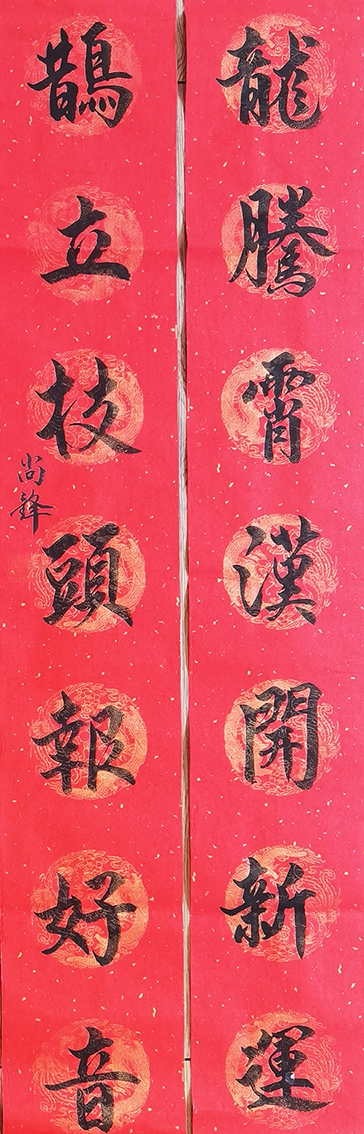 龍騰霄漢開新運
鵲立枝頭報好音
尚鋒